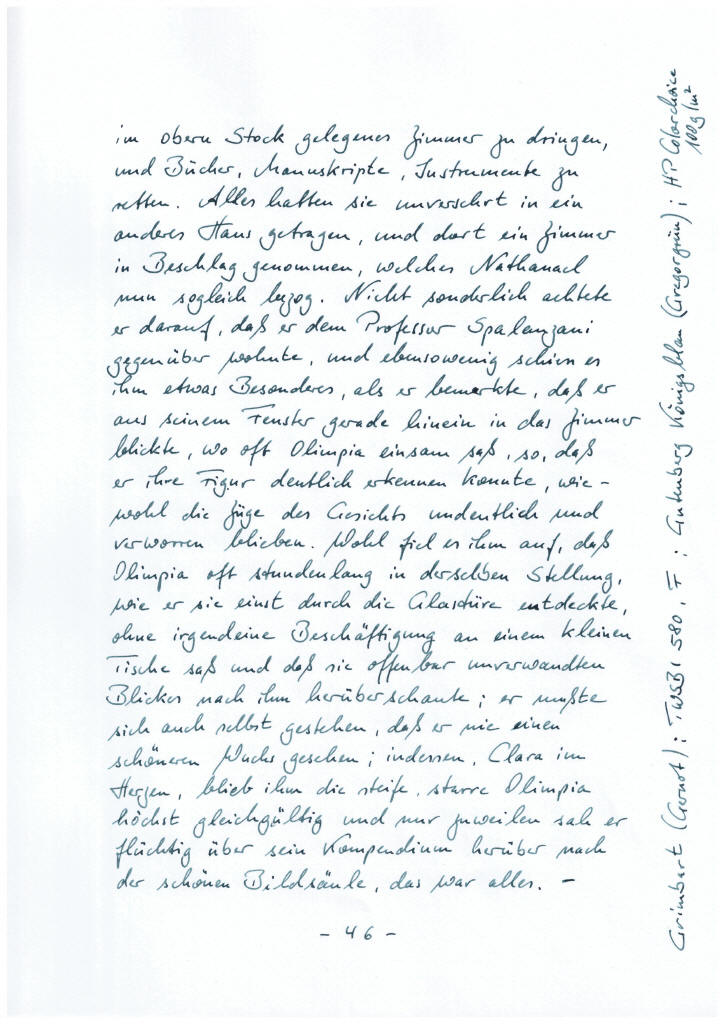 im obern Stock gelegenes Zimmer zu dringen,
und Bücher, Manuskripte, Instrumente zu
retten. Alles hatten sie unversehrt in ein
anderes Haus getragen, und dort ein Zimmer
in Beschlag genommen, welches Nathanael
nun sogleich bezog. Nicht sonderlich achtete
er darauf, daß er dem Professor Spalanzani
gegenüber wohnte, und ebensowenig schien es
ihm etwas Besonderes, als er bemerkte, daß er
aus seinem Fenster gerade hinein in das Zimmer
blickte, wo oft Olimpia einsam saß, so, daß
er ihre Figur deutlich erkennen konnte, wie-
wohl die Züge des Gesichts undeutlich und
verworren blieben. Wohl fiel es ihm auf, daß
Olimpia oft stundenlang in derselben Stellung,
wie er sie einst durch die Glastüre entdeckte,
ohne irgendeine Beschäftigung an einem kleinen
Tische saß und daß sie offenbar unverwandten
Blickes nach ihm herüberschaute; er mußte
sich auch selbst gestehen, daß er nie einen
schöneren Wuchs gesehen; indessen, Clara im
Herzen, blieb ihm die steife, starre Olimpia
höchst gleichgültig und nur zuweilen sah er
flüchtig über sein Kompendium herüber nach
der schönen Bildsäule, das war alles. –
- 46 -
Grimbart (Gernot); TWSBI 580, F; Gutenberg Königsblau (Gregorgrün); HP Colorchoice
100g/m²